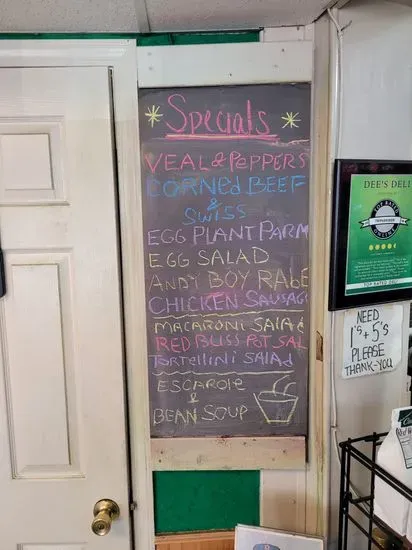 Specials
VEAL & PePPERS
CORNED BEEF
&
SWISS
EGG PLANT PARM
EGG SALAD
ANDY BOY RABE
CHICKEN SAUSAG
MACARONI SALAD
RED BLISS POT SAL
TORTELLINI SALAD
ESCAROLE
&
BEAN SOUP
DEE'S DELI
TOP RATED
ONLINE
TOP RATED 2016
NEED
1's + 5's
PLEASE
THANK-YOU